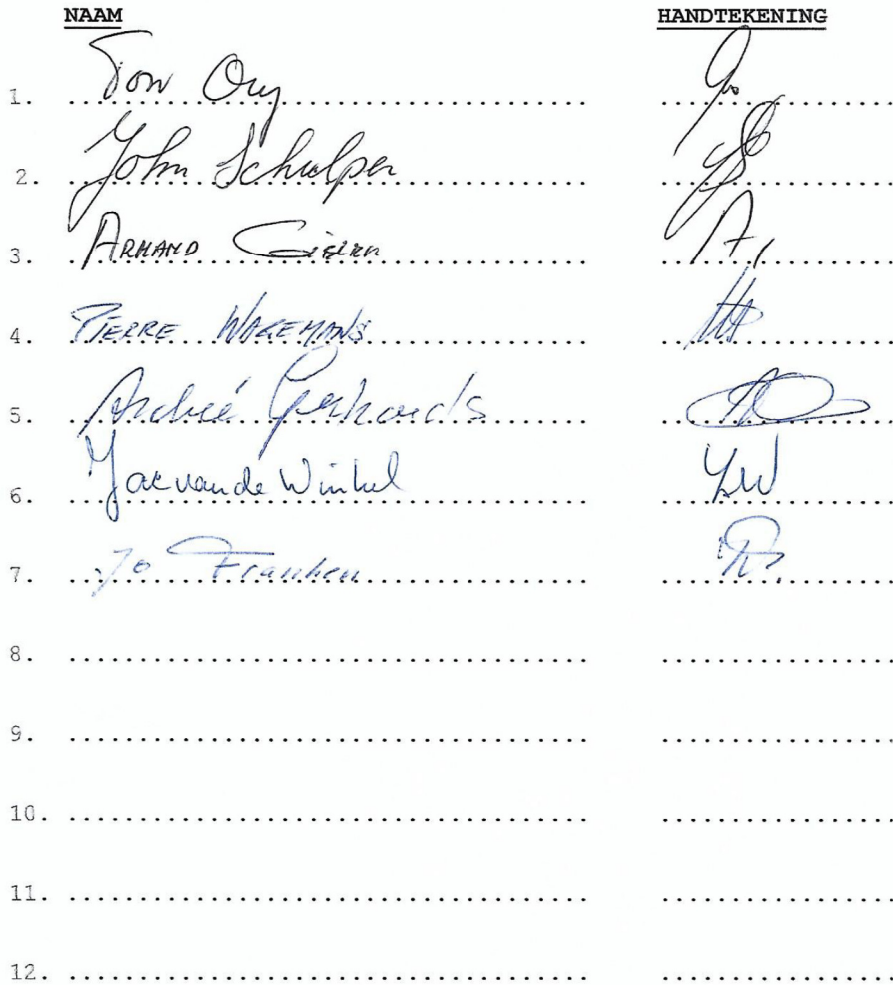 NAAM HANDTEKENING
1. Ton Ory
2. John Schulper
3. ARMAND
4. PIERRE WAGEMANS
5. André Gerhards
6. Jac van de Winkel
7. Jo Franken
8.
9.
10.
11.
12.